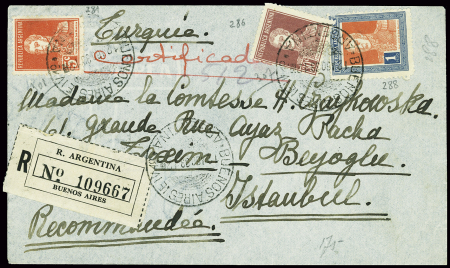 281
286
288
Turquie
Certificado
Madame la Comtesse H. Czaykowska
61. Grande Rue Ayaz Pacha
Taxim Beyoglu
Istanbul
Recommandée
R
R. ARGENTINA
Nº 109667
BUENOS AIRES
REPUBLICA ARGENTINA
5
1
BUENOS AIRES
175